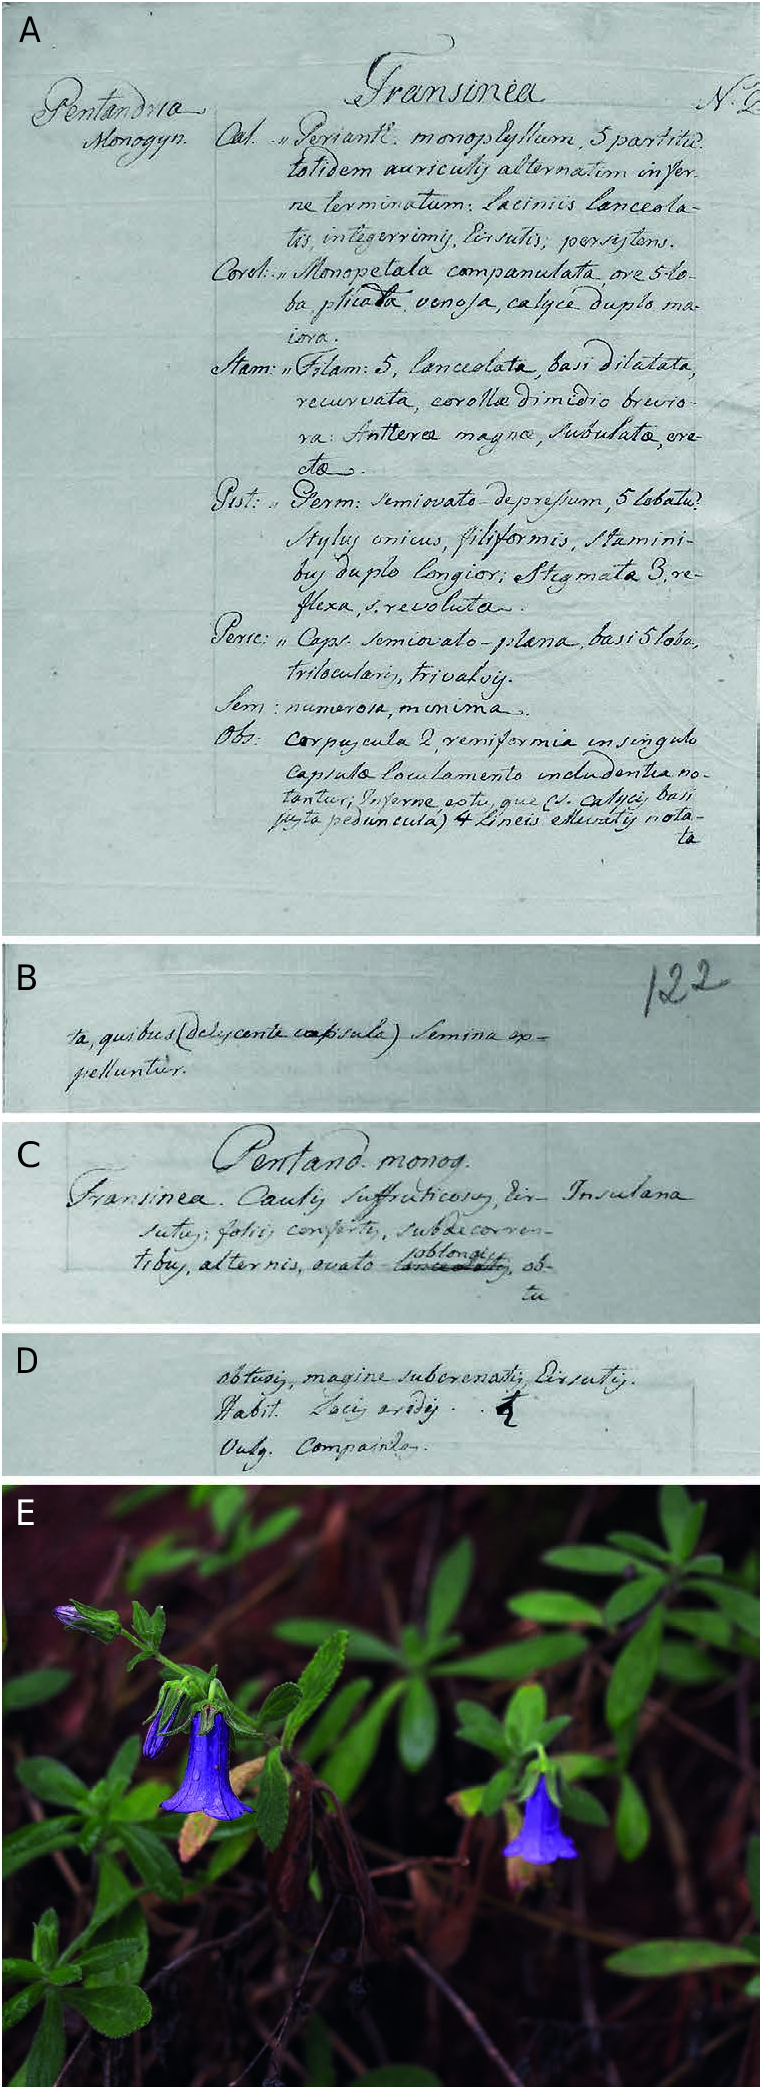 A
Fransinea
Pentandria
Monogyn.
N.
Cal. „ Perianth. monophyllum, 5 partitū.
totidem auriculis alternatim infer-
ne terminatum: laciniis lanceola-
tis, integerrimis, hirsutis; persistens.
Corol: „ Monopetala companulata, ore 5 lo-
ba, plicata, venosa, calyce duplo ma-
iora.
Stam: „ Filam: 5, lanceolata, basi dilatata,
recurvata, corollæ dimidio brevio-
ra: Antheræ magnæ, subulatæ, ere-
ctæ.
Pist: „ Germ: semiovato-depressum, 5 lobatū.
Stylus unicus, filiformis, stamini-
bus duplo longior; Stigmata 3, re-
flexa, s. revoluta.
Peric: „ Caps. semiovato-plana, basi 5 loba,
trilocularis, trivalvis.
Sem: numerosa, minima.
Obs: corpuscula 2, remiformia in singulo
capsulæ loculamento includentia no-
tantur; Inferne que (s. calycis basi
juxta pedunculū) 4 lineis notá-
ta
B
122
ta, quibus (dehiscente capsula) semina ex-
pelluntur.
C
Pentand. monog.
Fransinea. Caulis suffruticosus, hir- Insulana
sutus; foliis confertis, subdecurren-
oblongis
tibus, alternis, ovato - lanceolatis, ob-
tu
D
obtusis, magine subcrenatis, hirsutis.
Habit. Locis aridis. .
Vulg. Compainha.
E